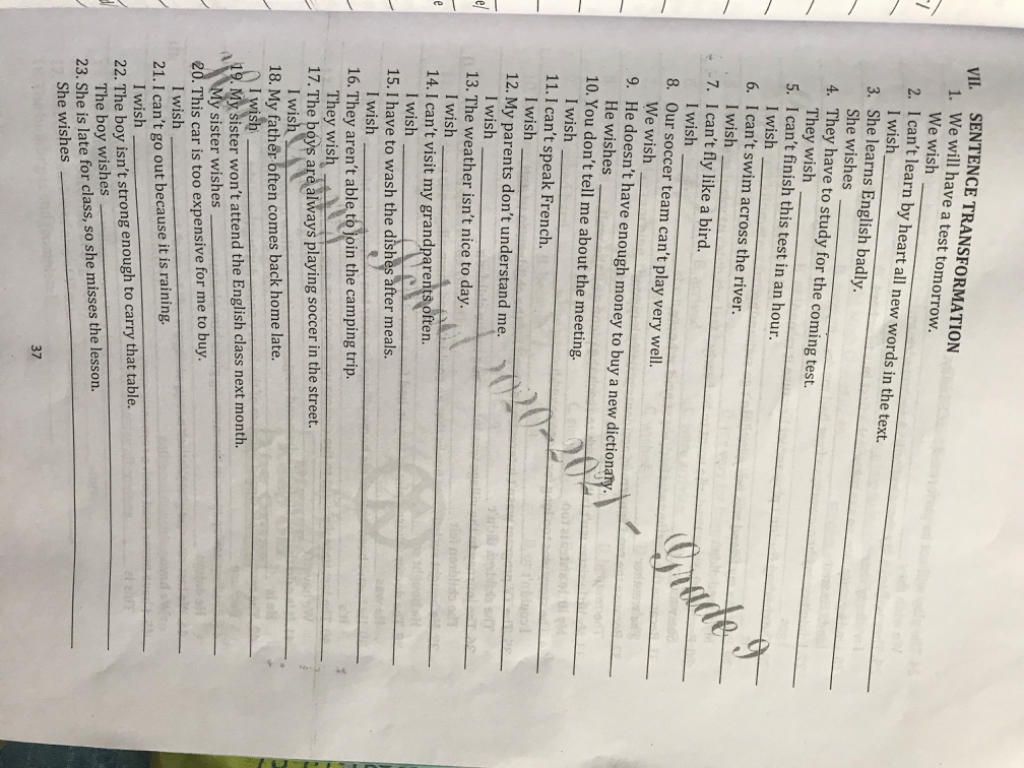 VII. SENTENCE TRANSFORMATION
1. We will have a test tomorrow.
We wish
2. I can't learn by heart all new words in the text.
I wish
3. She learns English badly.
She wishes
4. They have to study for the coming test.
They wish
5. I can't finish this test in an hour.
I wish
6. I can't swim across the river.
I wish
7. I can't fly like a bird.
I wish
8. Our soccer team can't play very well.
We wish
9. He doesn't have enough money to buy a new dictionary.
He wishes
10. You don't tell me about the meeting.
I wish
11. I can't speak French.
I wish
12. My parents don't understand me.
I wish
13. The weather isn't nice to day.
I wish
14. I can't visit my grandparents offen.
I wish
15. I have to wash the dishes after meals.
I wish
16. They aren't able to join the camping trip.
They wish
17. The boys are always playing soccer in the street.
I wish
18. My father often comes back home late.
I wish
19. My sister won't attend the English class next month.
My sister wishes
20. This car is too expensive for me to buy.
I wish
21. I can't go out because it is raining.
I wish
22. The boy isn't strong enough to carry that table.
The boy wishes
23. She is late for class, so she misses the lesson.
She wishes
School 2020-2021 - Grade 9
37